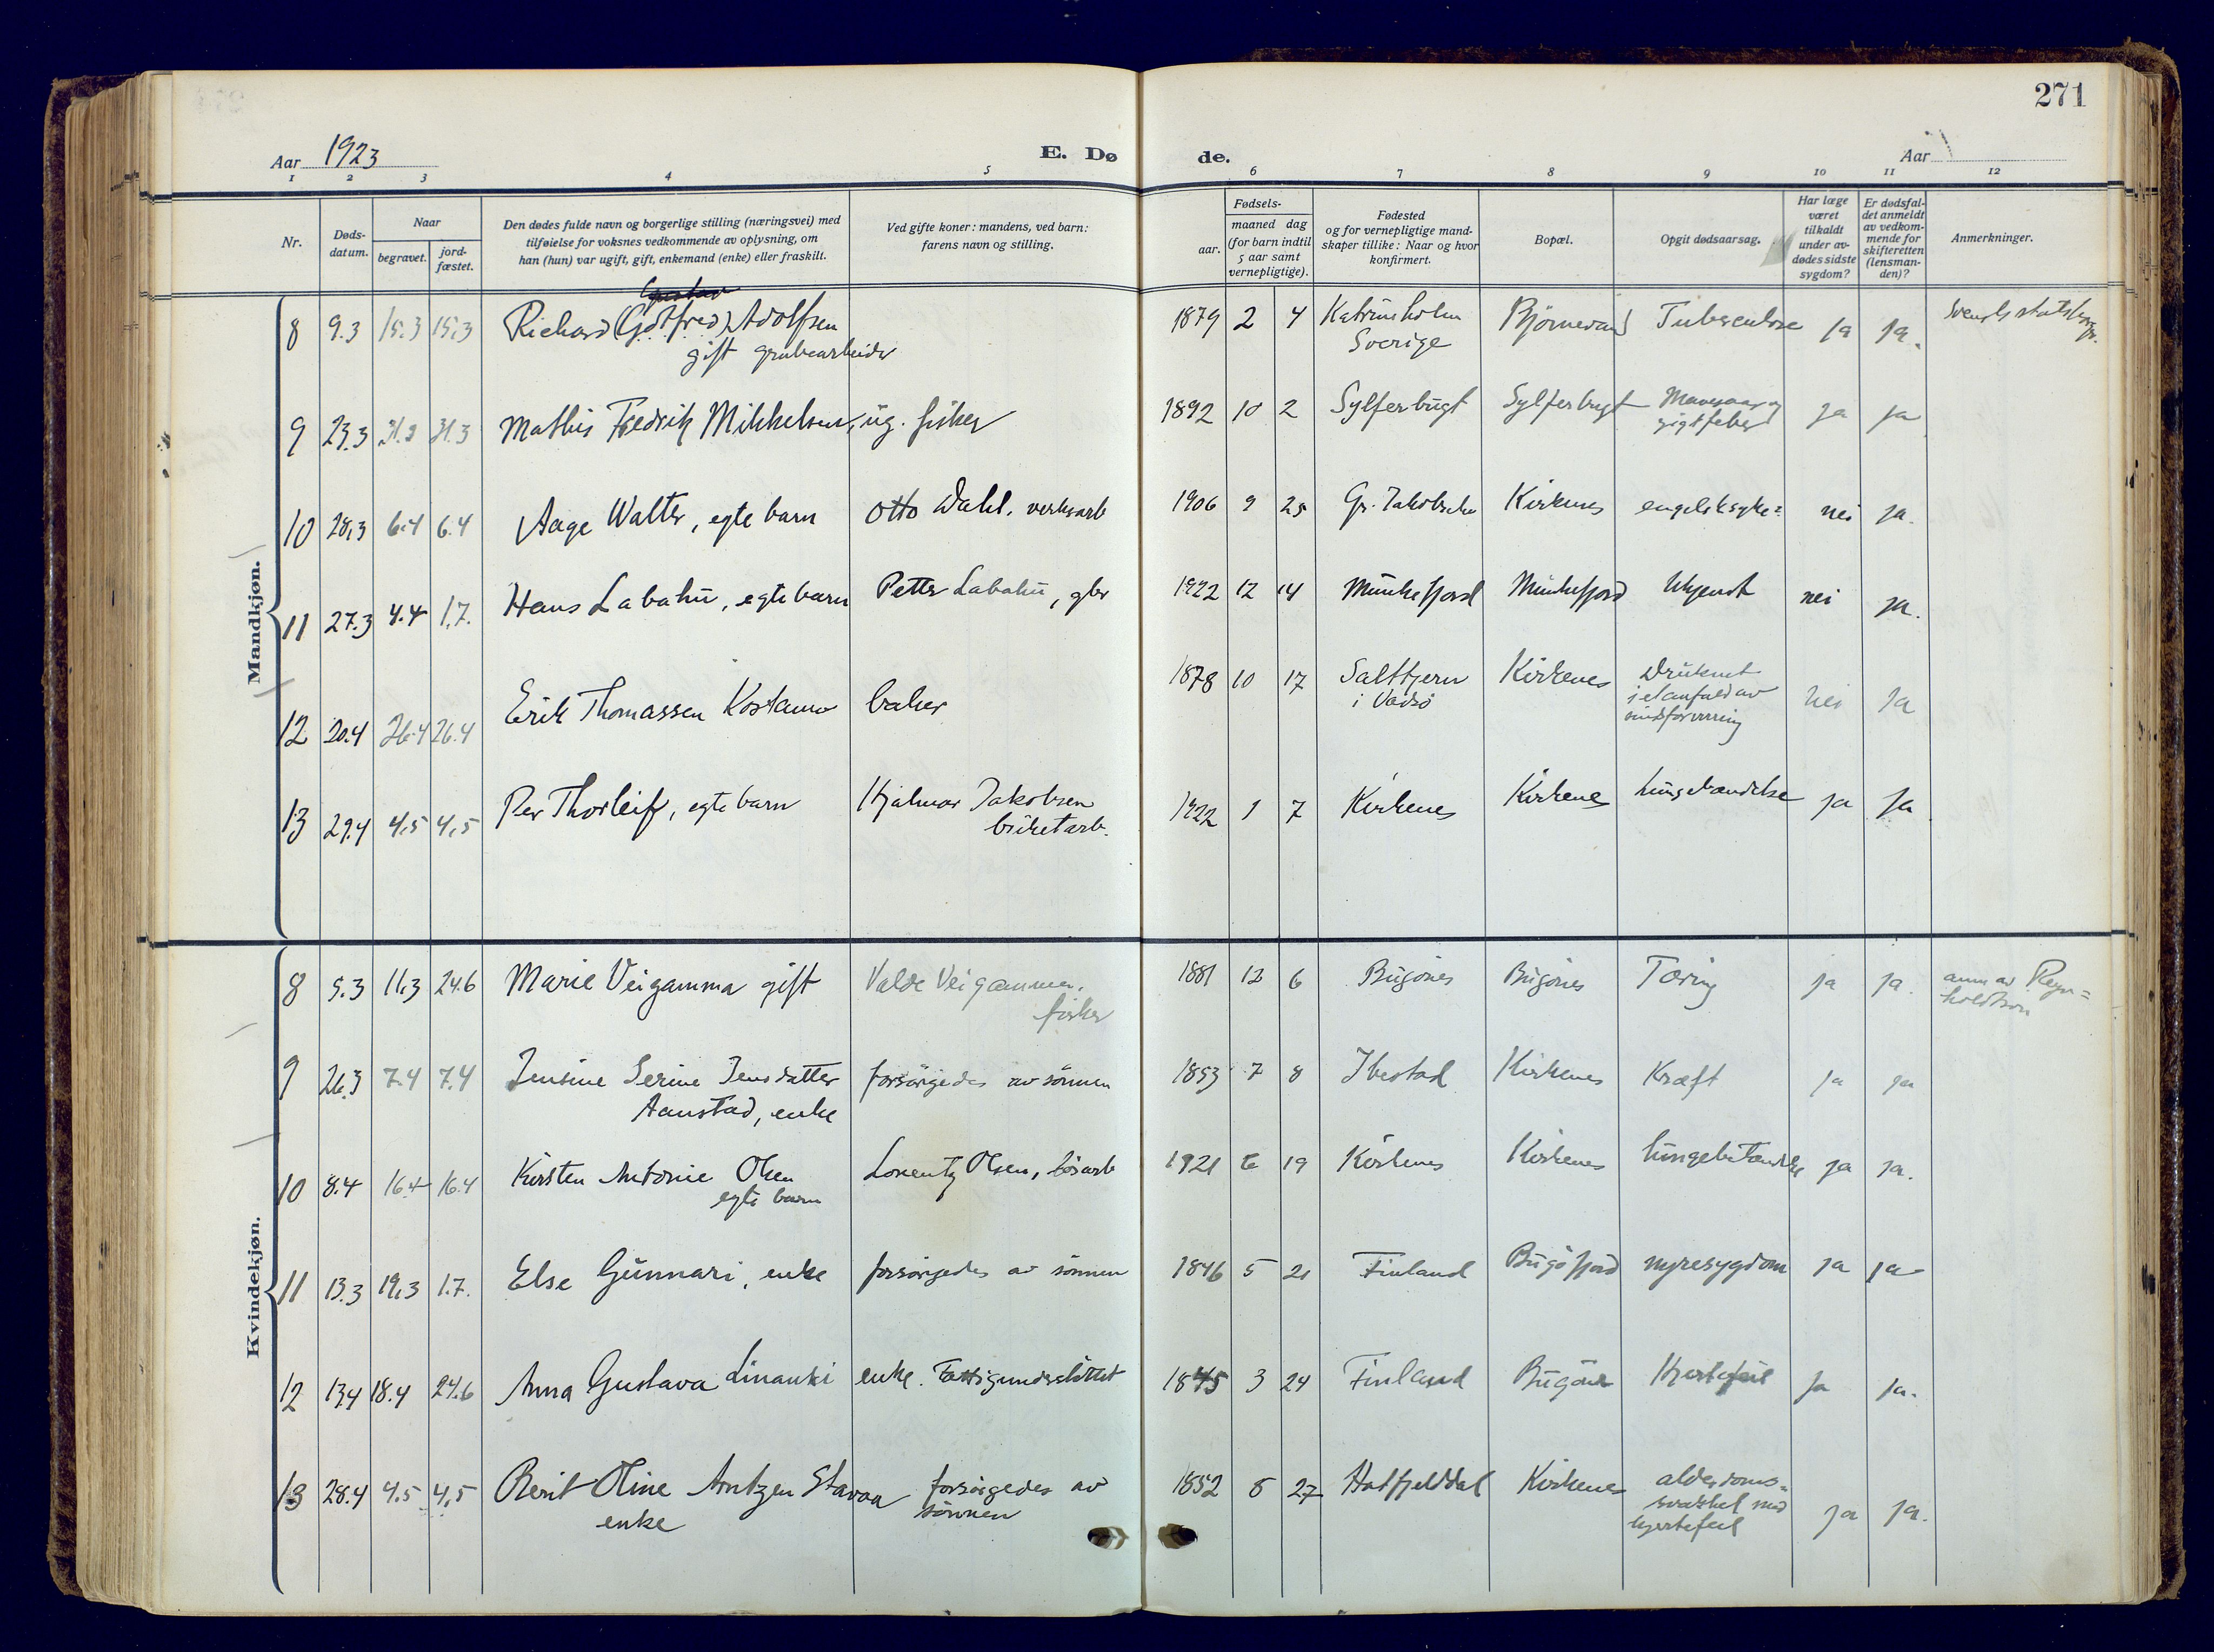 271
Aar 1923
E. Dø
de.
Aar
1 2 3 4 5 6 7 8 9 10 11 12
Nr.
Døds-
datum.
Naar
begravet.
jord-
fæstet.
Den dødes fulde navn og borgerlige stilling (næringsvei) med
tilføielse for voksnes vedkommende av oplysning, om
han (hun) var ugift, gift, enkemand (enke) eller fraskilt.
Ved gifte koner: mandens, ved barn:
farens navn og stilling.
Fødsels-
aar.
maaned dag
(for barn indtil
5 aar samt
vernepligtige).
Fødested
og for vernepligtige mand-
skaper tillike: Naar og hvor
konfirmert.
Bopæl.
Opgit dødsaarsag.
Har læge
været
tilkaldt
under av-
dødes sidste
sygdom?
Er dødsfal-
det anmeldt
av vedkom-
mende for
skifteretten
(lensman-
den)?
Anmerkninger.
Mandkjøn.
8 9.3 15.3 15.3 Richard (Gotfred) Adolfsen 1879 2 4 Katrineholm Bjørnevand Tuberculose ja ja.
gift grubearbeider Sverige
9 23.3 31.3 31.3 Mathis Fredrik Mikkelsen, ug. fisker 1892 10 2 Sylferbugt Sylferbugt Mavesaar og ja ja
gigtfeber
10 28.3 6.4 6.4 Aage Walter, egte barn Otto Dahl, verksarb 1906 9 25 Gr. Jakobselv Kirkenes engelsksyke nei ja.
11 27.3 4.4 1.7. Hans Labahü, egte barn Petter Labahü, gbr 1922 12 14 Munkefjord Munkefjord Ukjendt nei ja.
12 20.4 26.4 26.4 Erik Thomassen Kostamo baker 1878 10 17 Saltfjern Kirkenes Druknet nei ja
i Vadsø i et anfald av
sindsforvirring
13 29.4 4.5 4.5 Per Thorleif, egte barn Hjalmar Jakobsen 1922 1 7 Kirkenes Kirkenes lungebetændelse ja ja
briketarb.
Kvindekjøn.
8 5.3 11.3 24.6 Marie Veigamma gift Valde Veigamma, 1881 12 6 Bugønes Bugønes Tæring ja ja. anm av Reyn=
fisker holdtsen
9 26.3 7.4 7.4 Jensine Serine Jensdatter forsørgedes av sønnen 1853 7 8 Ibestad Kirkenes Kræft ja ja
Aanstad, enke
10 8.4 16.4 16.4 Kirsten Antonie Olsen Lorentz Olsen, løsarb 1921 6 19 Kirkenes Kirkenes lungebetændelse ja ja.
egte barn
11 13.3 19.3 1.7. Else Gunnari, enke forsørgedes av sønnen 1846 5 21 Finland Bugøfjord nyresygdom ja ja
12 13.4 18.4 24.6 Anna Gustava Linanki enke. Fattigunderstøttet 1845 3 24 Finland Bugønes Hjertefeil ja ja.
13 28.4 4.5 4.5 Berit Oline Arntzen Stavaa forsørgedes av 1852 8 27 Hatfjelddal Kirkenes alderdoms=
enke sønnen svakhet med ja ja.
hjertefeil